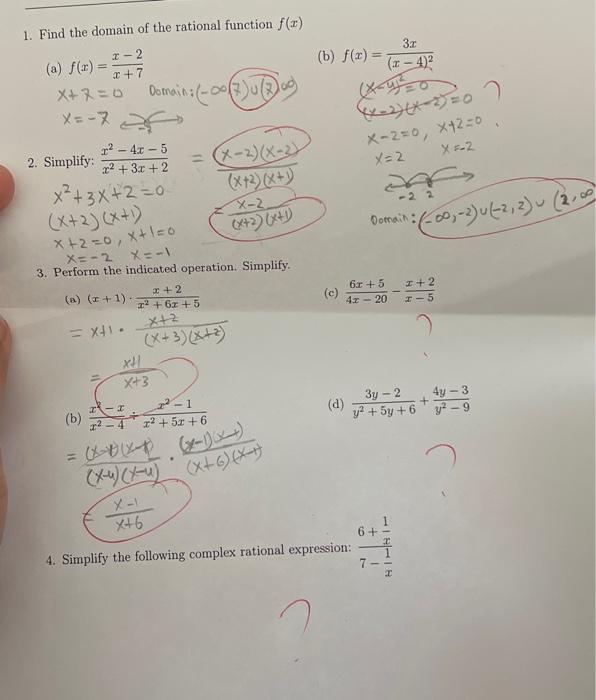 1. Find the domain of the rational function f(x)
(a) f(x) = (x − 2)/(x + 7)
x+7=0 Domain: (-∞,7)∪(7,∞)
x=-7
-7
(b) f(x) = 3x/(x − 4)²
(x-4)²=0
(x-2)(x-2)=0 ?
x-2=0, x+2=0
x=2 x=-2
-2 2
Domain: (-∞,-2)∪(-2,2)∪(2,∞
2. Simplify: (x² − 4x − 5)/(x² + 3x + 2) = (x-2)(x-2)/(x+2)(x+1)
= x-2/(x+2)(x+1)
x²+3x+2=0
(x+2)(x+1)
x+2=0, x+1=0
x=-2 x=-1
3. Perform the indicated operation. Simplify.
(a) (x + 1) · (x + 2)/(x² + 6x + 5)
= x+1 · x+2/(x+3)(x+2)
= x+1/x+3
(c) (6x + 5)/(4x − 20) − (x + 2)/(x − 5)
?
(b) (x² − x)/(x² − 4) ÷ (x² − 1)/(x² + 5x + 6)
(x-4)(x-4)
= x-1/x+6
(d) (3y − 2)/(y² + 5y + 6) + (4y − 3)/(y² − 9)
?
4. Simplify the following complex rational expression: (6 + 1/x)/(7 − 1/x)
?